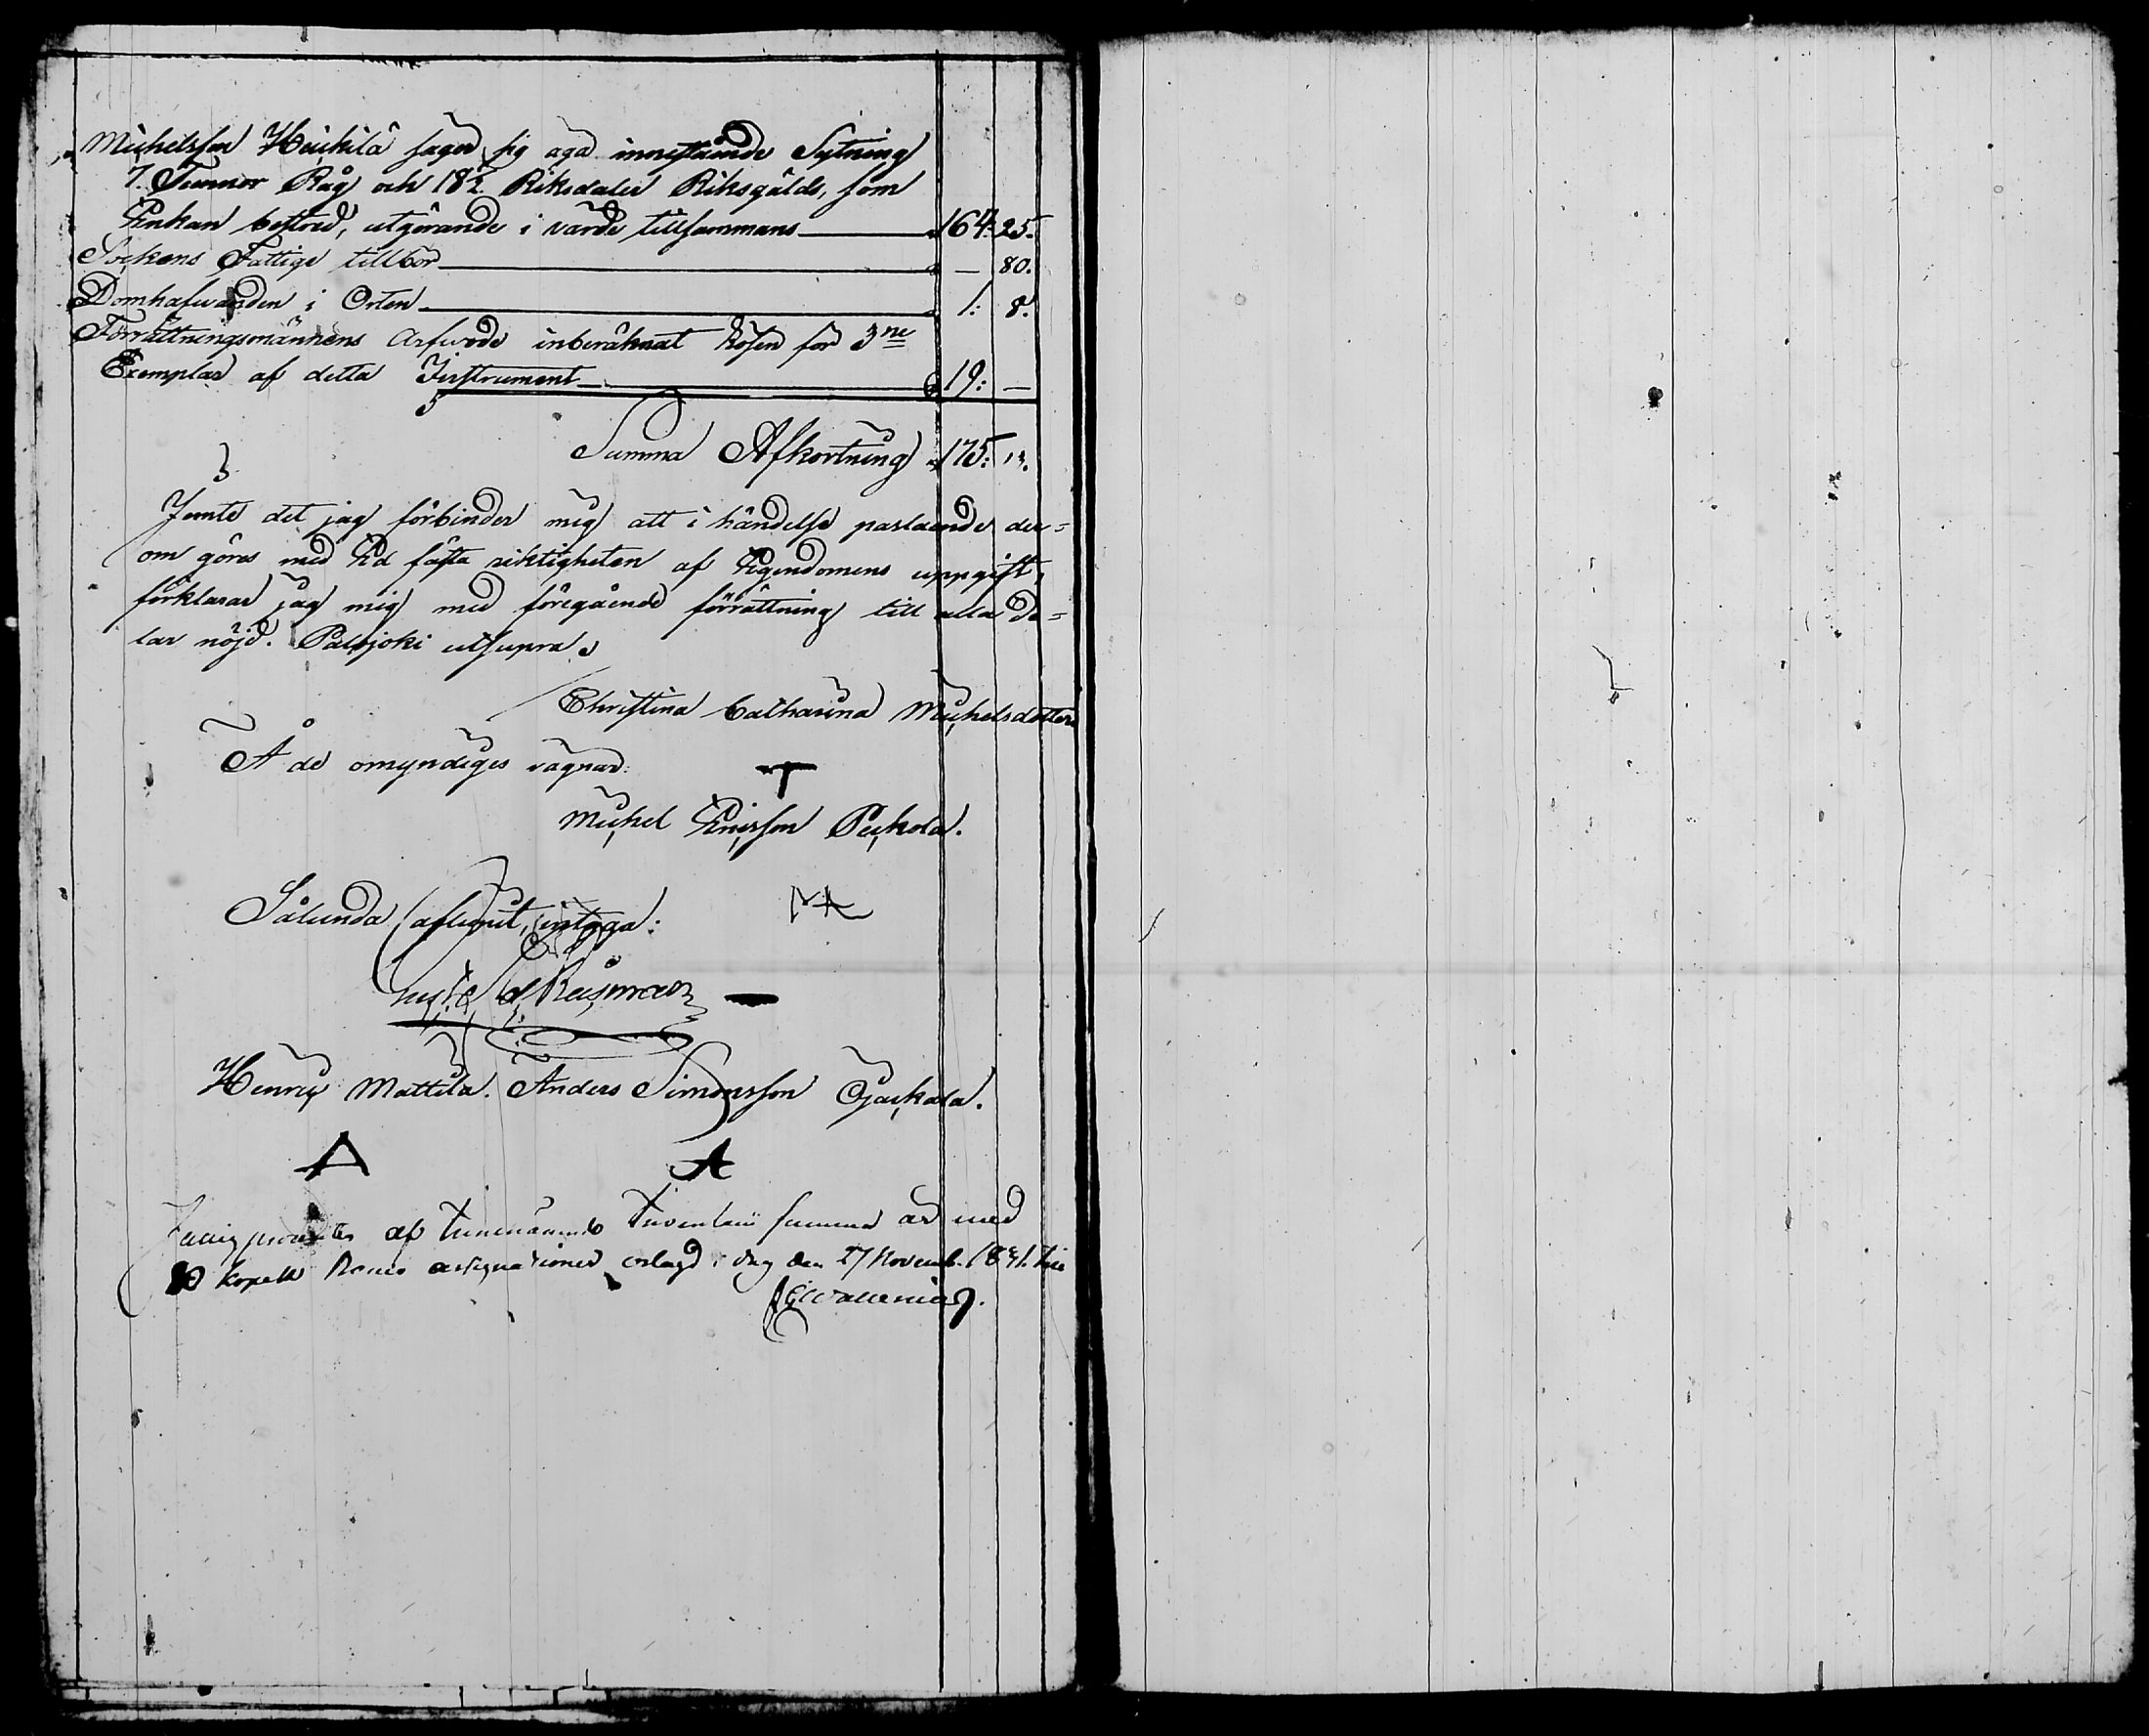 Michelsson Heickilä säger sig äga innestående Sytning
7. Tunnor Råg och 182 Riksdaler Riksgälds, som
Enkan bestred, utgörande i värde tillsammans 164: 25.
Sockens Fattige tillkör — 80.
Domhafwanden i Orten 1: 8.
Förrättningsmännens Arfwode inberäknat lösen för 3ne
Exemplar af detta Instrument 19: —
Summa Afkortning 175: 13.
Jemte det jag förbinder mig att i händelse påstående der=
om göres med Ed fästa riktigheten af Egendomens uppgift,
förklarar jag mig med föregående förrättning till alla de=
lar nöjd. Palojoki utsupra
Christina Catharina Michelsdotter
Å de omyndiges vägnar:
Michel Ericsson Peckola.
Sålunda aflupit, intyga:
Henric Mattila. Anders Simonsson Ojackala.
A A
af Inventarii summa är med
kopek Banco assignationer erlagd i dag den 27 Novemb. 1831.
Wallenius.